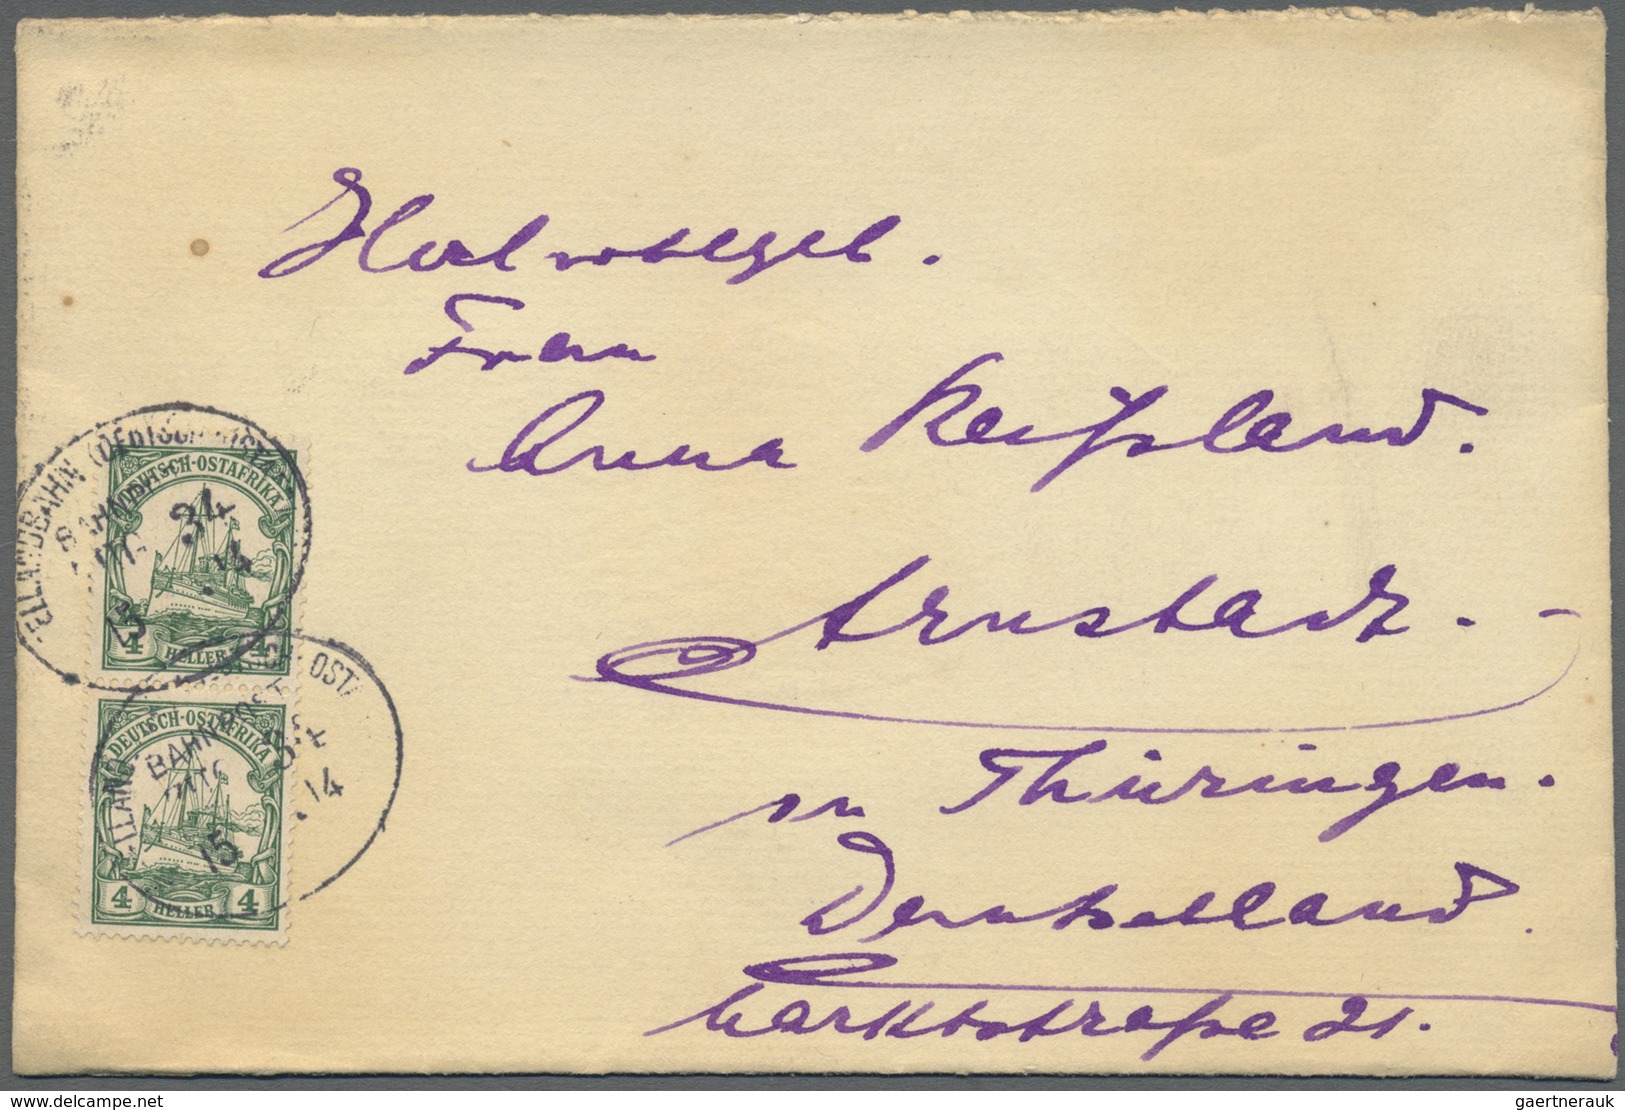 Hochwohlgeb.
Frau
Anna Reißland.
Arnstadt. -
in Thüringen.
Deutschland.
Marktstraße 21.
DEUTSCH-OSTAFRIKA
4 HELLER 4
DEUTSCH-OSTAFRIKA
4 HELLER 4
BAHNPOST
ZUG 34
15 14
BAHNPOST
ZUG 34
15 . 14
delcampe.net
gaertnerauk